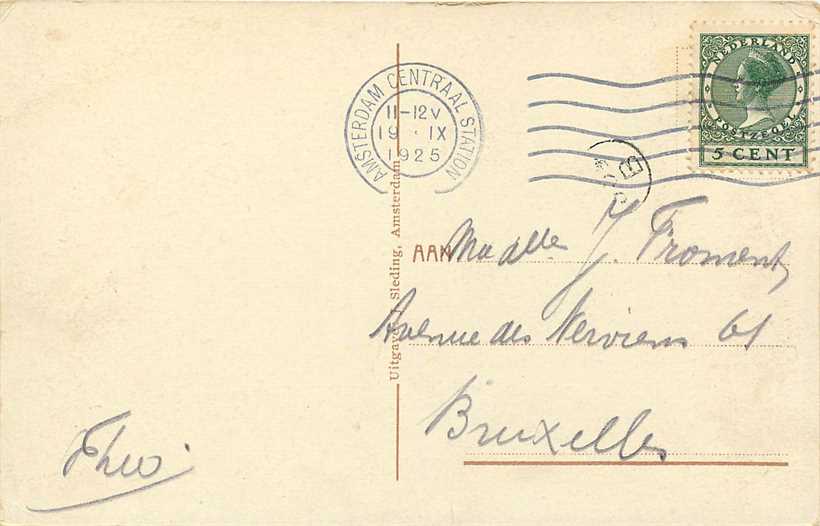 AMSTERDAM CENTRAAL STATION
11-12V
19 · IX
1925
NEDERLAND
POSTZEGEL
5 CENT
Uitgave Sleding, Amsterdam
AAN Madlle J. Froment
Avenue des Nerviens 61
Bruxelles
Theo.